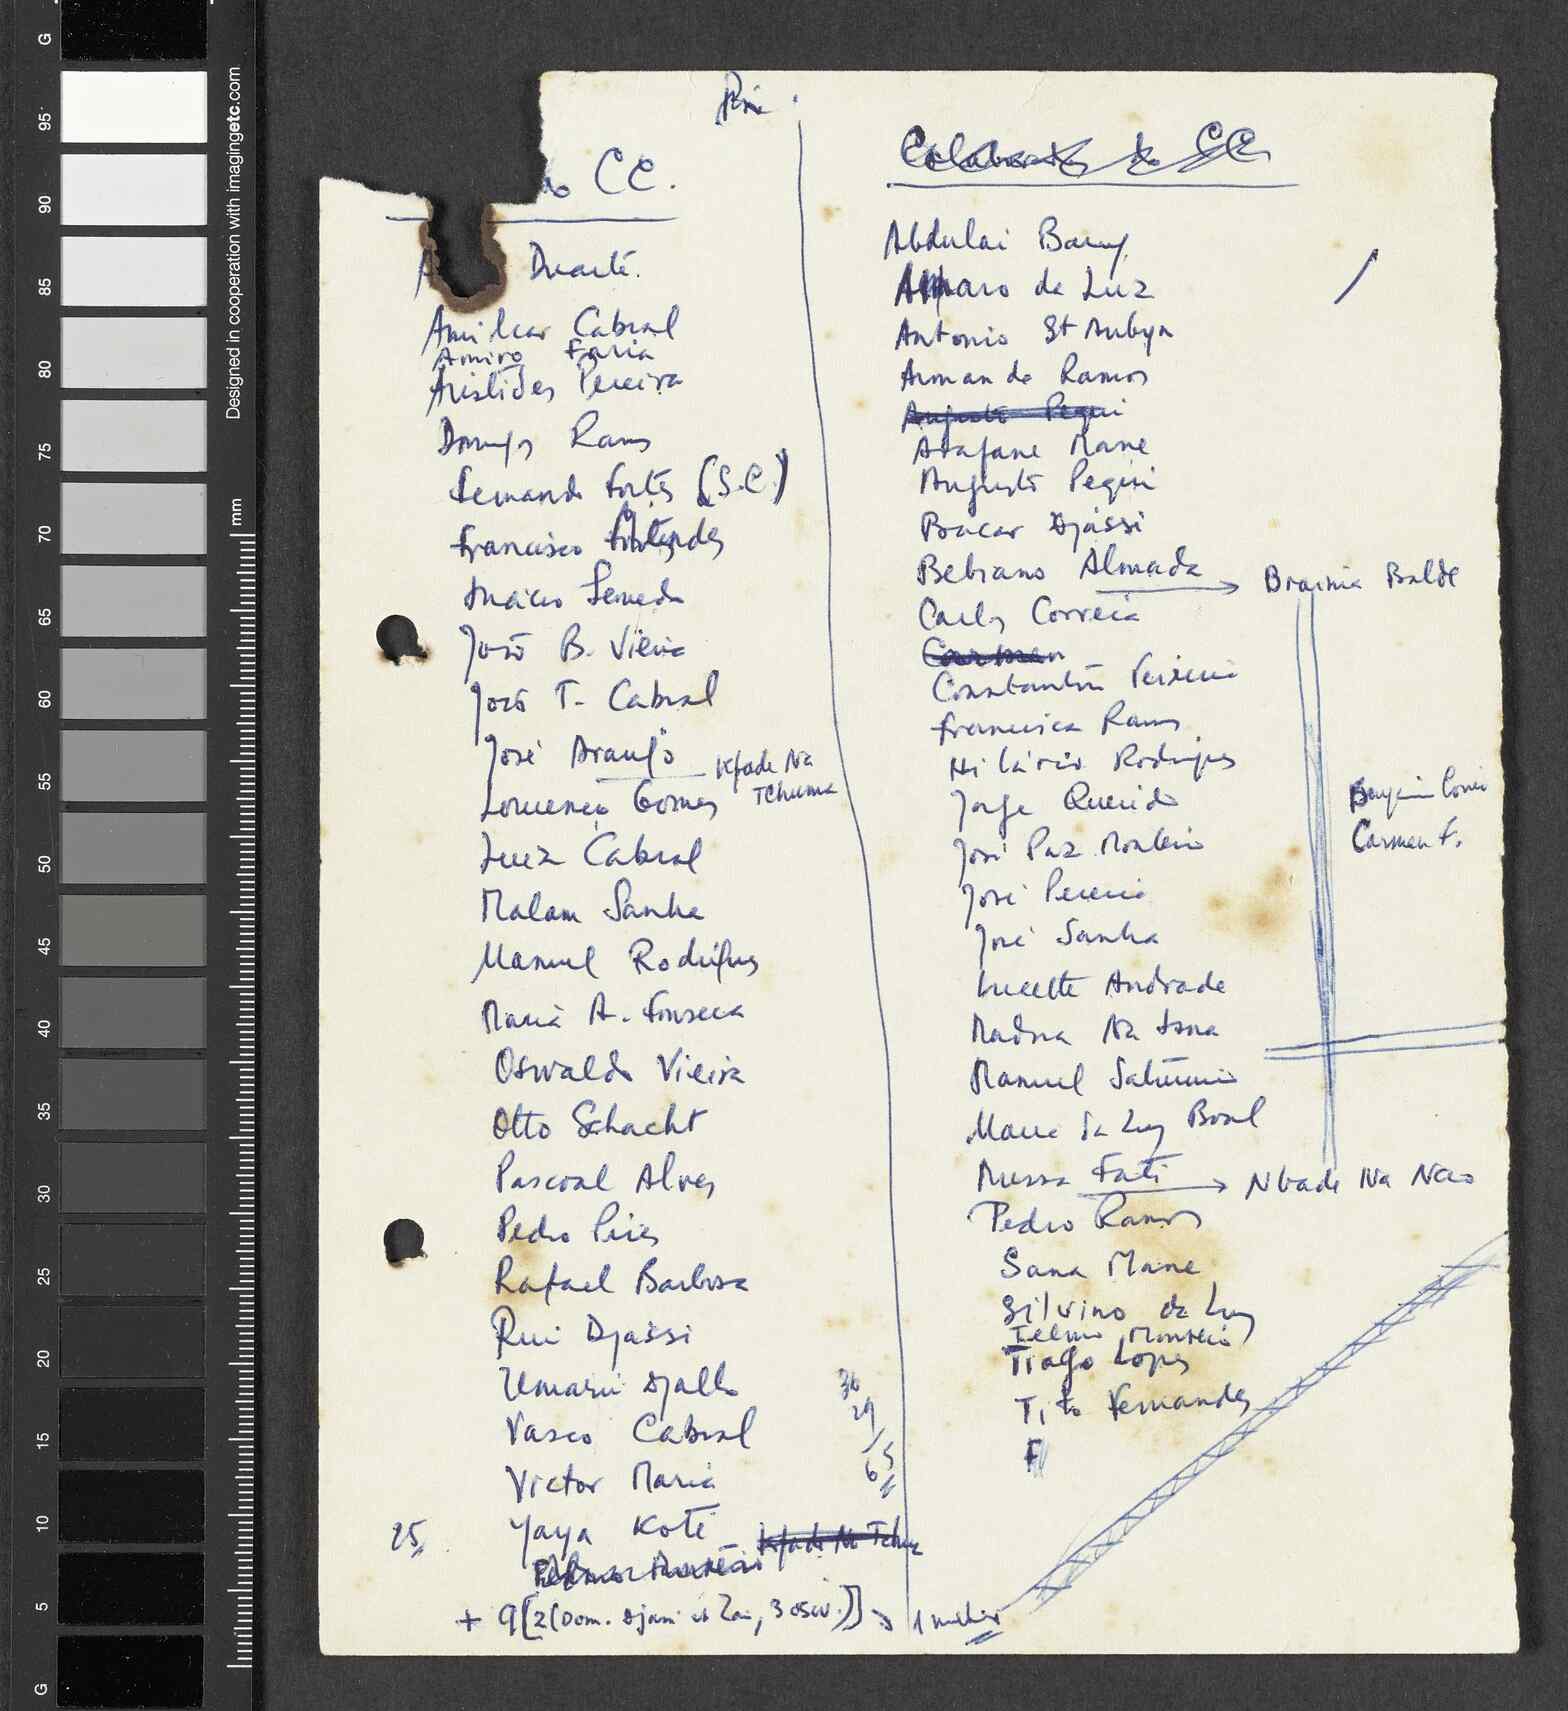 do CC.
Duarte.
Amilcar Cabral
Amiro Faria
Aristides Pereira
Domingos Ramos
Fernando Fortes (S.C.)
Francisco Mendes
Inácio Semedo
João B. Vieira
João T. Cabral
José Araujo
Kfade Na
Tchuma
Lourenço Gomes
Luiz Cabral
Malam Sanha
Manuel Rodrigues
Maria A. Fonseca
Oswaldo Vieira
Otto Schacht
Pascoal Alves
Pedro Pires
Rafael Barbosa
Rui Djassi
Umaru Djallo
36
29
65
Vasco Cabral
Victor Maria
25
Yaya Koté
Kfade Na Tchu
+ 9 [2 (Dom. Djam
3 osw.)]
Colaboradores do CC
Abdulai Barry
Amaro da Luz
Antonio St Aubyn
Armando Ramos
Augusto Pequi
Arafane Mane
Augusto Pequi
Bacar Djassi
Bebiano Almada → Braima Balde
Carlos Correia
Carmen
Constantino Teixeira
Francisca Ramos
Hilário Rodrigues
Jorge Querido
José Paz Monteiro
José Pereira
José Sanha
Lucette Andrade
Madna Na Isna
Manuel Saturnino
Maria da Luz Boal
Mussa Fati → Nbade Na Nao
Pedro Ramos
Sana Mane
Silvino da Luz
Telmo Monteiro
Tiago Lopes
Tito Fernandes
F
Carmen F.
Designed in cooperation with imagingetc.com
mm
G
95
90
85
80
75
70
65
60
55
50
45
40
35
30
25
20
15
10
5
G